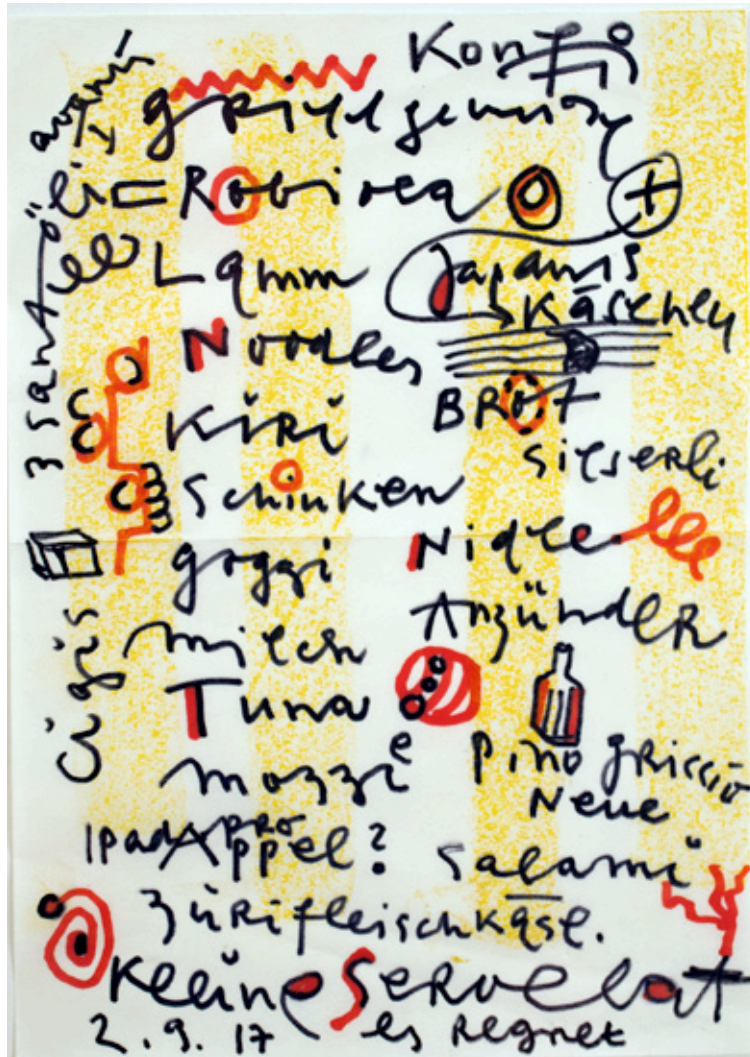 Konfi
grillgemüse
Robiola
Lamm
Japanis
Käseheu
Noodles
Brot
Kiri
Silserli
Schinken
Nidle
goggi
Anzünder
milch
Tuna
mozzie
Pino griccio
Neue
Ipad pro
Appel?
Salami
züriFleischkäse.
Kleine Servelat
2.9.17 es Regnet